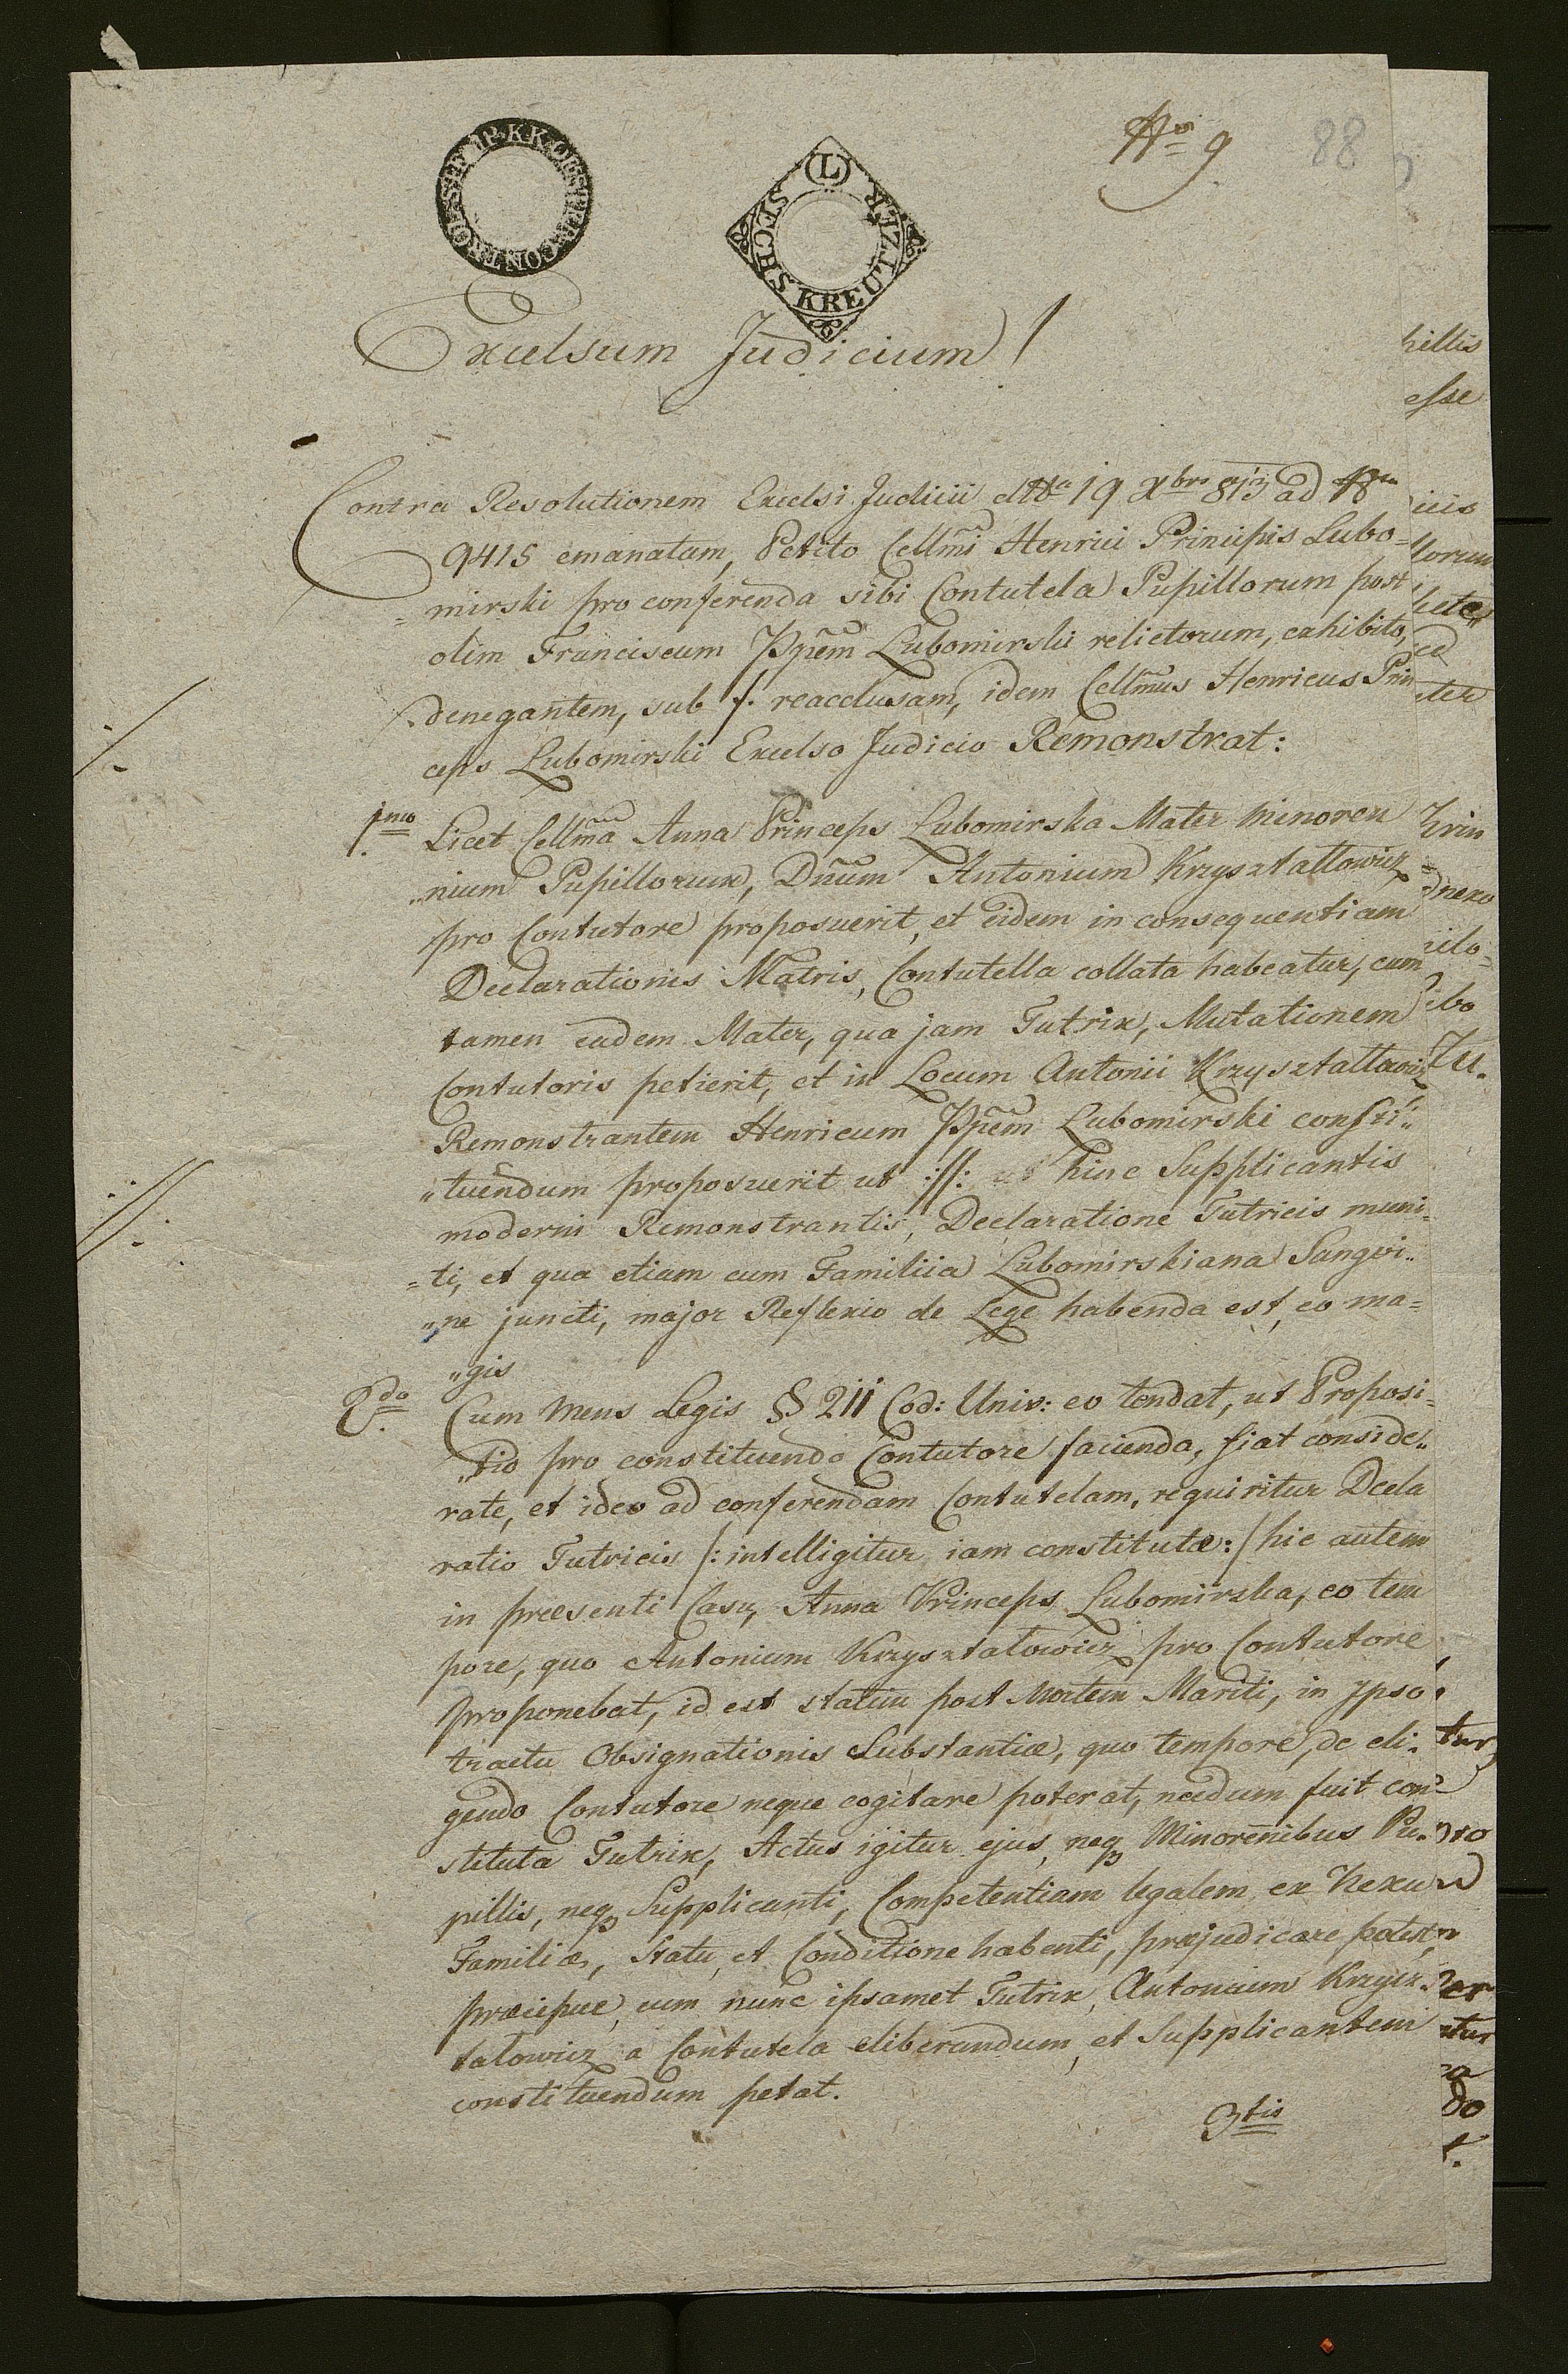 Nro 9
88
STEMP. K. K. OESTER. CONTROLLE
(L)
SECHS KREUTZER
Excelsum Judicium!
Contra Resolutionem Excelsi Judicii ddto 19 Xbris 813 ad Nrum
9415 emanatam, Petito Cellmi Henrici Principis Lubo=
=mirski pro conferenda sibi Contutela Pupillorum post
olim Franciscum Ppem Lubomirski relictorum, exhibito,
denegantem, sub /. reacclusam, idem Cellmus Henricus Prin
ceps Lubomirski Excelso Judicio Remonstrat:
1mo Licet Cellma Anna Princeps Lubomirska Mater minoren
„nium Pupillorum, Dnum Antonium Krzysztallowicz
pro Contutore proposuerit, et eidem in consequentiam
Declarationis Matris, Contutella collata habeatur, cum
tamen eadem Mater, qua jam Tutrix, Mutationem
Contutoris petierit, et in Locum Antonii Krzysztallowicz
Remonstrantem Henricum Ppem Lubomirski consti„
„tuendum proposuerit ut ://: hinc Supplicantis
moderni Remonstrantis, Declaratione Tutricis muni=
=ti, et qua etiam cum Familiia Lubomirskiana Sangvi„
„ne juncti, major Reflexio de Lege habenda est, eo ma=
„gis
2do Cum mens Legis § 211 Cod: Univ: eo tendat, ut Proposi=
„tio pro constituendo Contutore facienda, fiat conside„
rate, et ideo ad conferendam Contutelam, requiritur Decla
ratio Tutricis /: intelligitur iam constitutæ :/ hic autem
in præsenti Casu, Anna Princeps Lubomirska, eo tem
pore, quo Antonium Krzysztalowicz pro Contutore
proponebat, id est statim post Mortem Mariti, in ypso
tractu Obsignationis Substantiæ, quo tempore, de eli„
gendo Contutore neque cogitare poterat, necdum fuit con=
stituta Tutrix, Actus igitur ejus, neq Minorenibus Pu„
pillis, neq Supplicanti, Competentiam legalem ex Nexu
Familiæ, Statu, et Conditione habenti, præjudicare potest,
præcipue, cum nunc ipsamet Tutrix, Antonium Krzysz„
talowicz a Contutela eliberandum, et Supplicantem
constituendum petat.
3tio